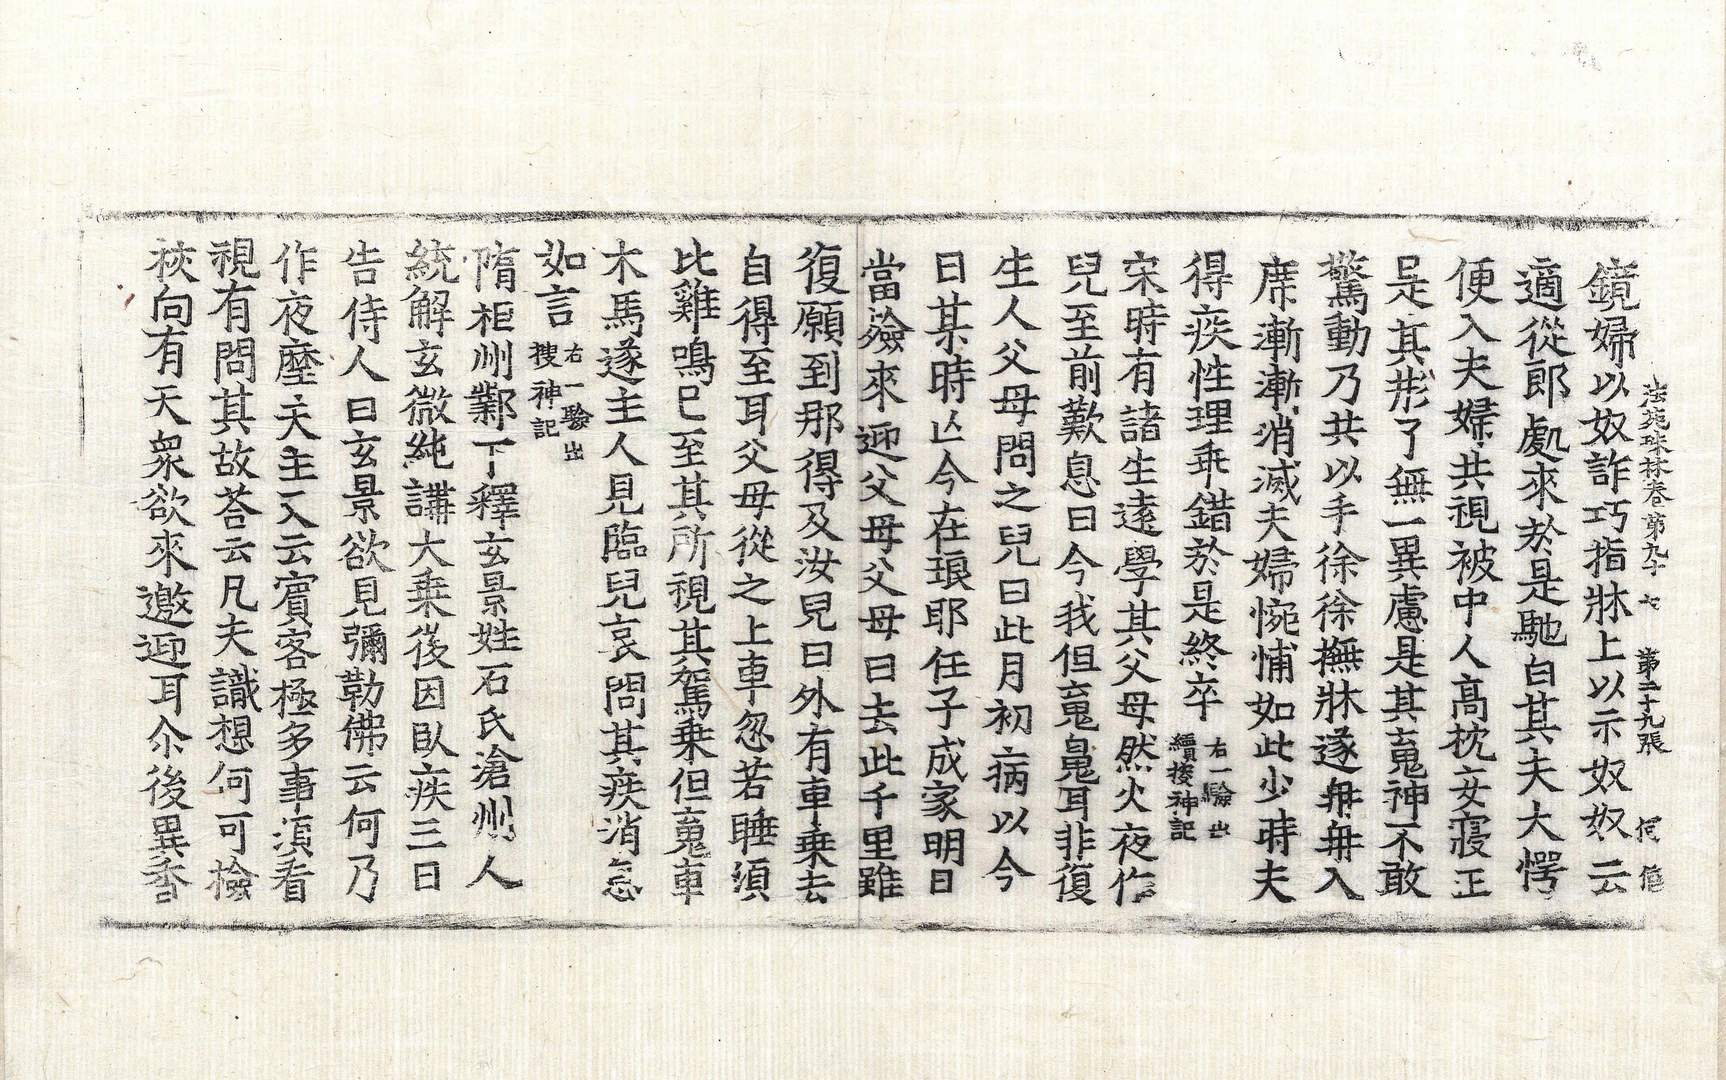 法苑珠林卷第九十七 第二十九張
鏡婦以奴詐巧指牀上以示奴奴云
適從郎處來於是馳白其夫大愕
便入夫婦共視被中人高枕安寢正
是其形了無一異慮是其䰟神不敢
驚動乃共以手徐徐撫牀遂冉冉入
席漸漸消滅夫婦惋怖如此少時夫
得疾性理乖錯於是終卒 右一驗出續搜神記
宋時有諸生遠學其父母然火夜作
兒至前歎息曰今我但䰟䰟耳非復
生人父母問之兒曰此月初病以今
日某時亡今在琅耶任子成家明日
當殮來迎父母父母曰去此千里雖
復願到那得及汝兒曰外有車乘去
自得至耳父母從之上車忽若睡須
比雞鳴已至其所視其駕乘但䰟車
木馬遂主人見臨兒哀問其疾消息
如言 右一驗出搜神記
隋相州鄴下釋玄景姓石氏滄州人
統解玄微純講大乘後因臥疾三日
告侍人曰玄景欲見彌勒佛云何乃
作夜摩天主又云賓客極多事須看
視有問其故荅云凡夫識想何可檢
校向有天衆欲來邀迎耳尒後異香